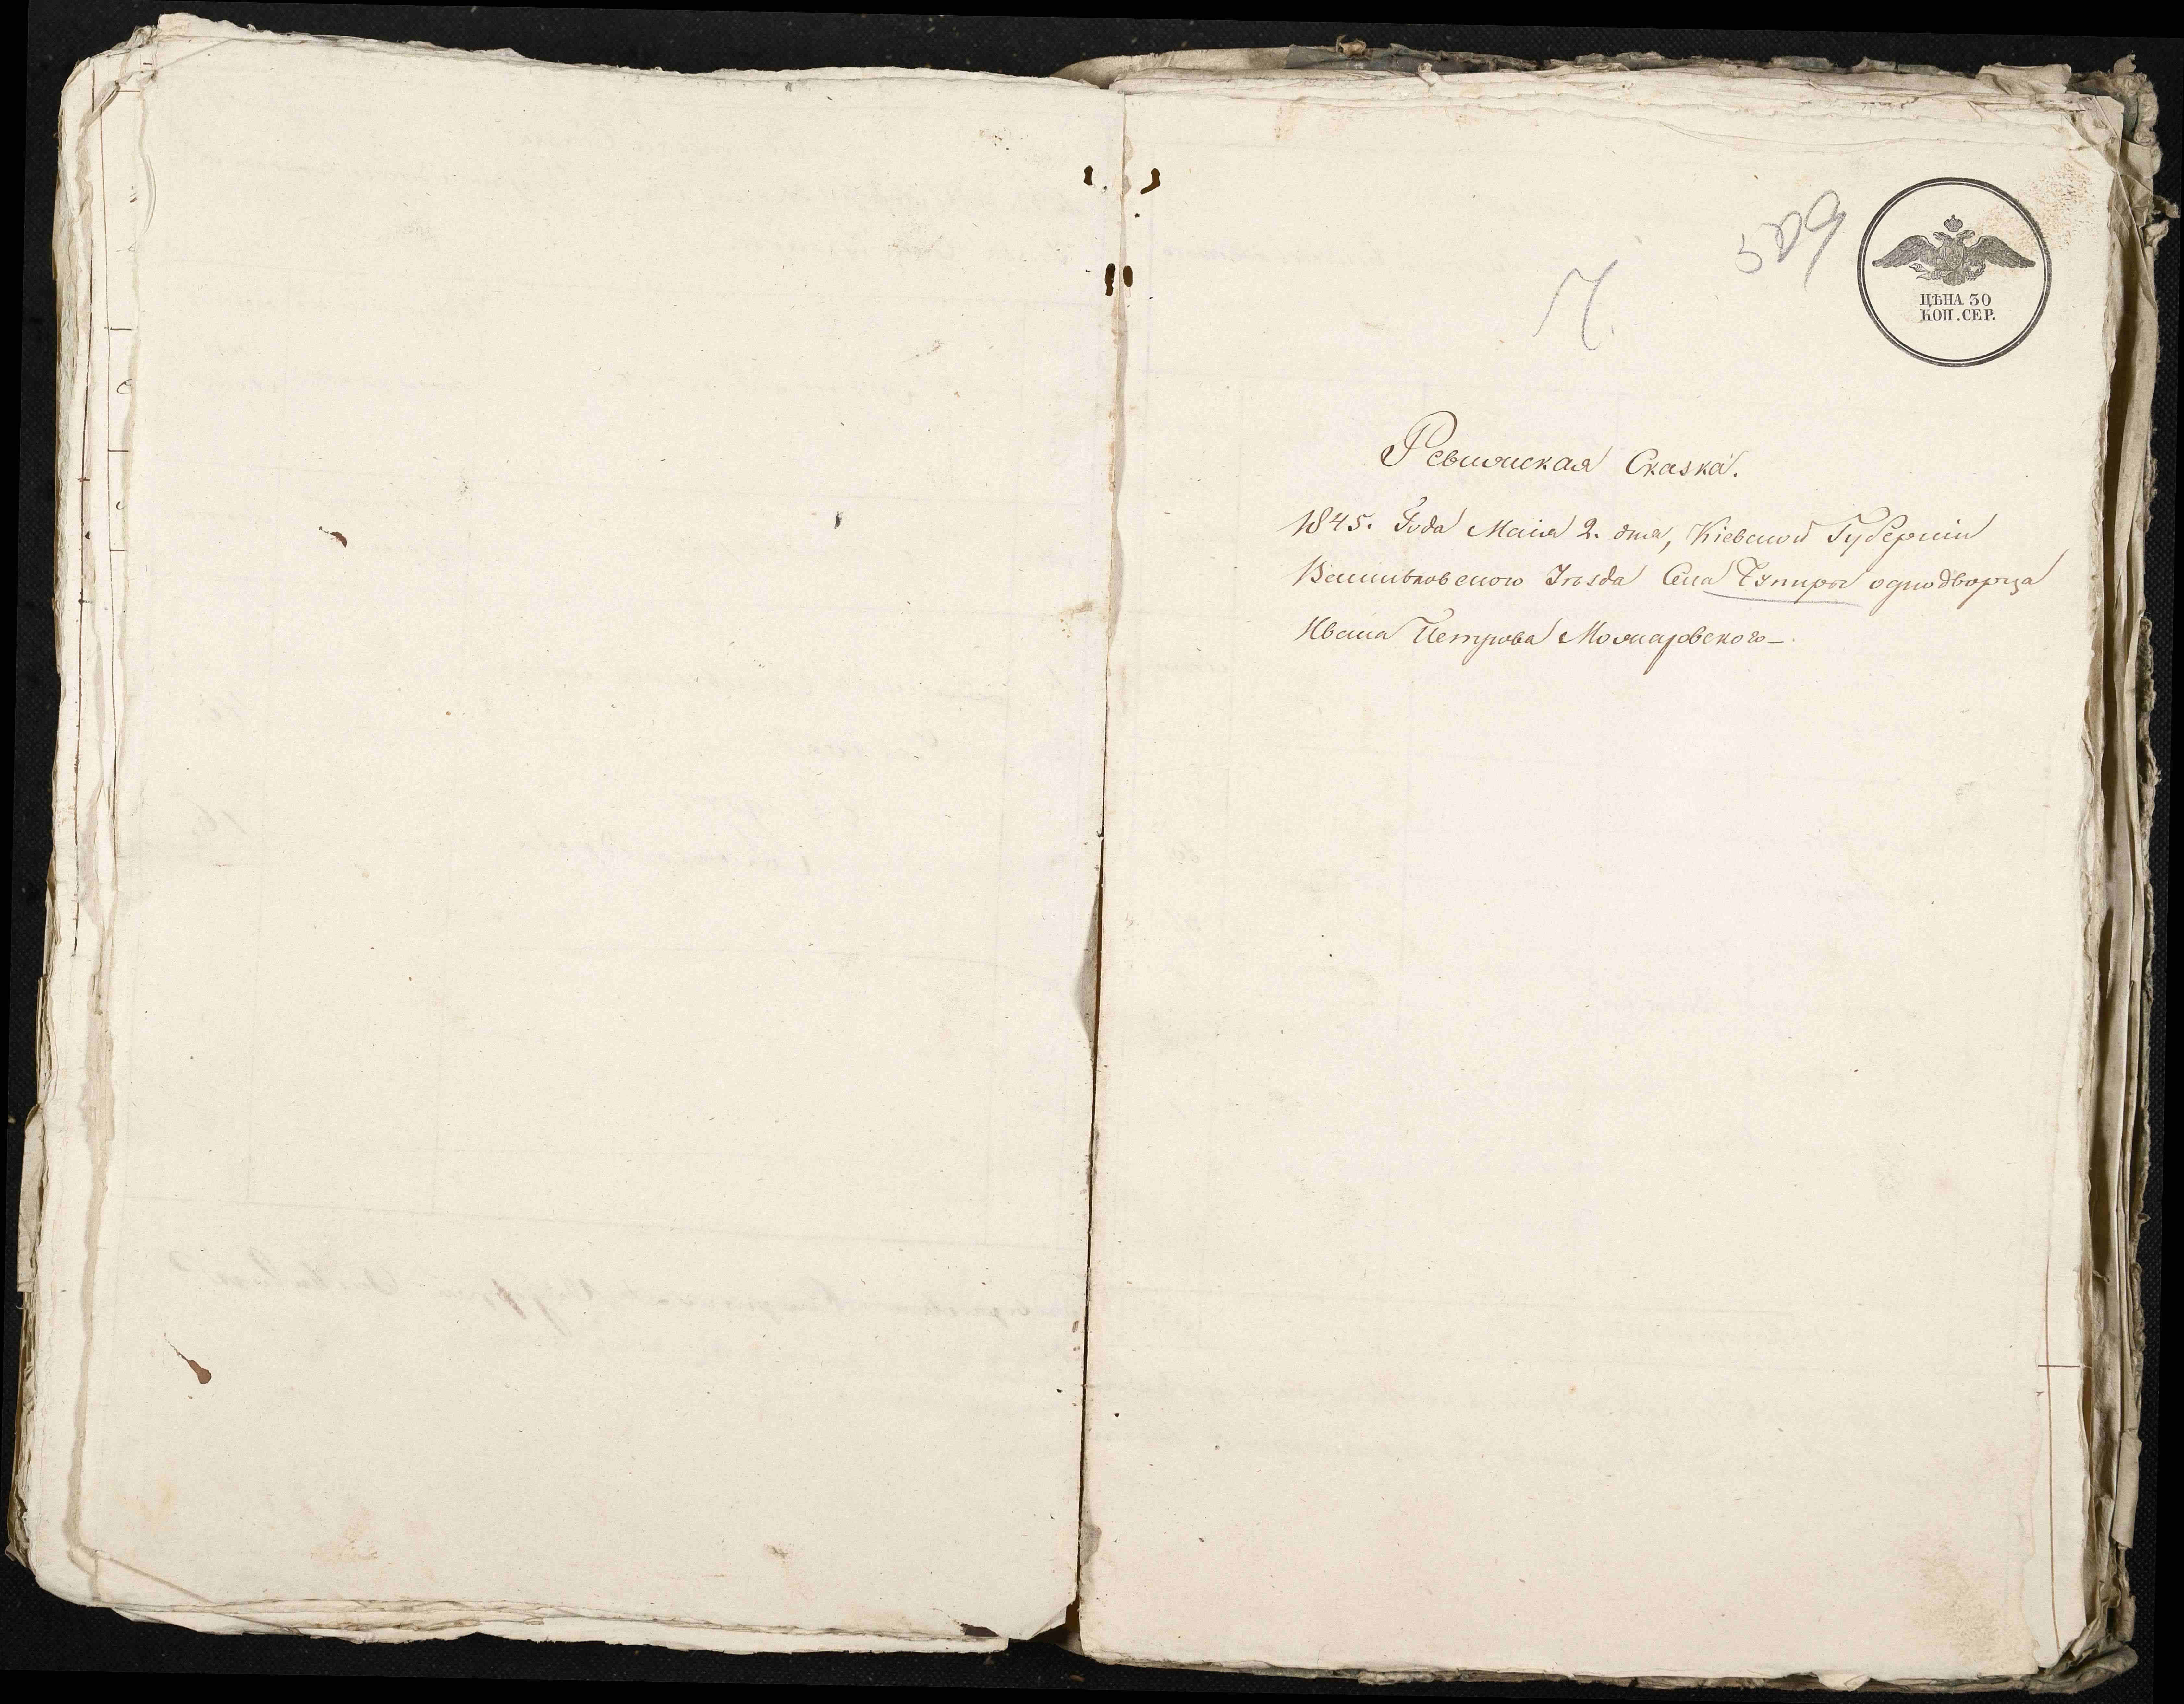 589
Ч.
ЦѢНА 30
КОП. СЕР.
Ревизская Сказка.
1845. Года Маія 2. дня, Кіевской Губерніи
Васильковского Уѣзда Села однодворца
Ивана Петрова